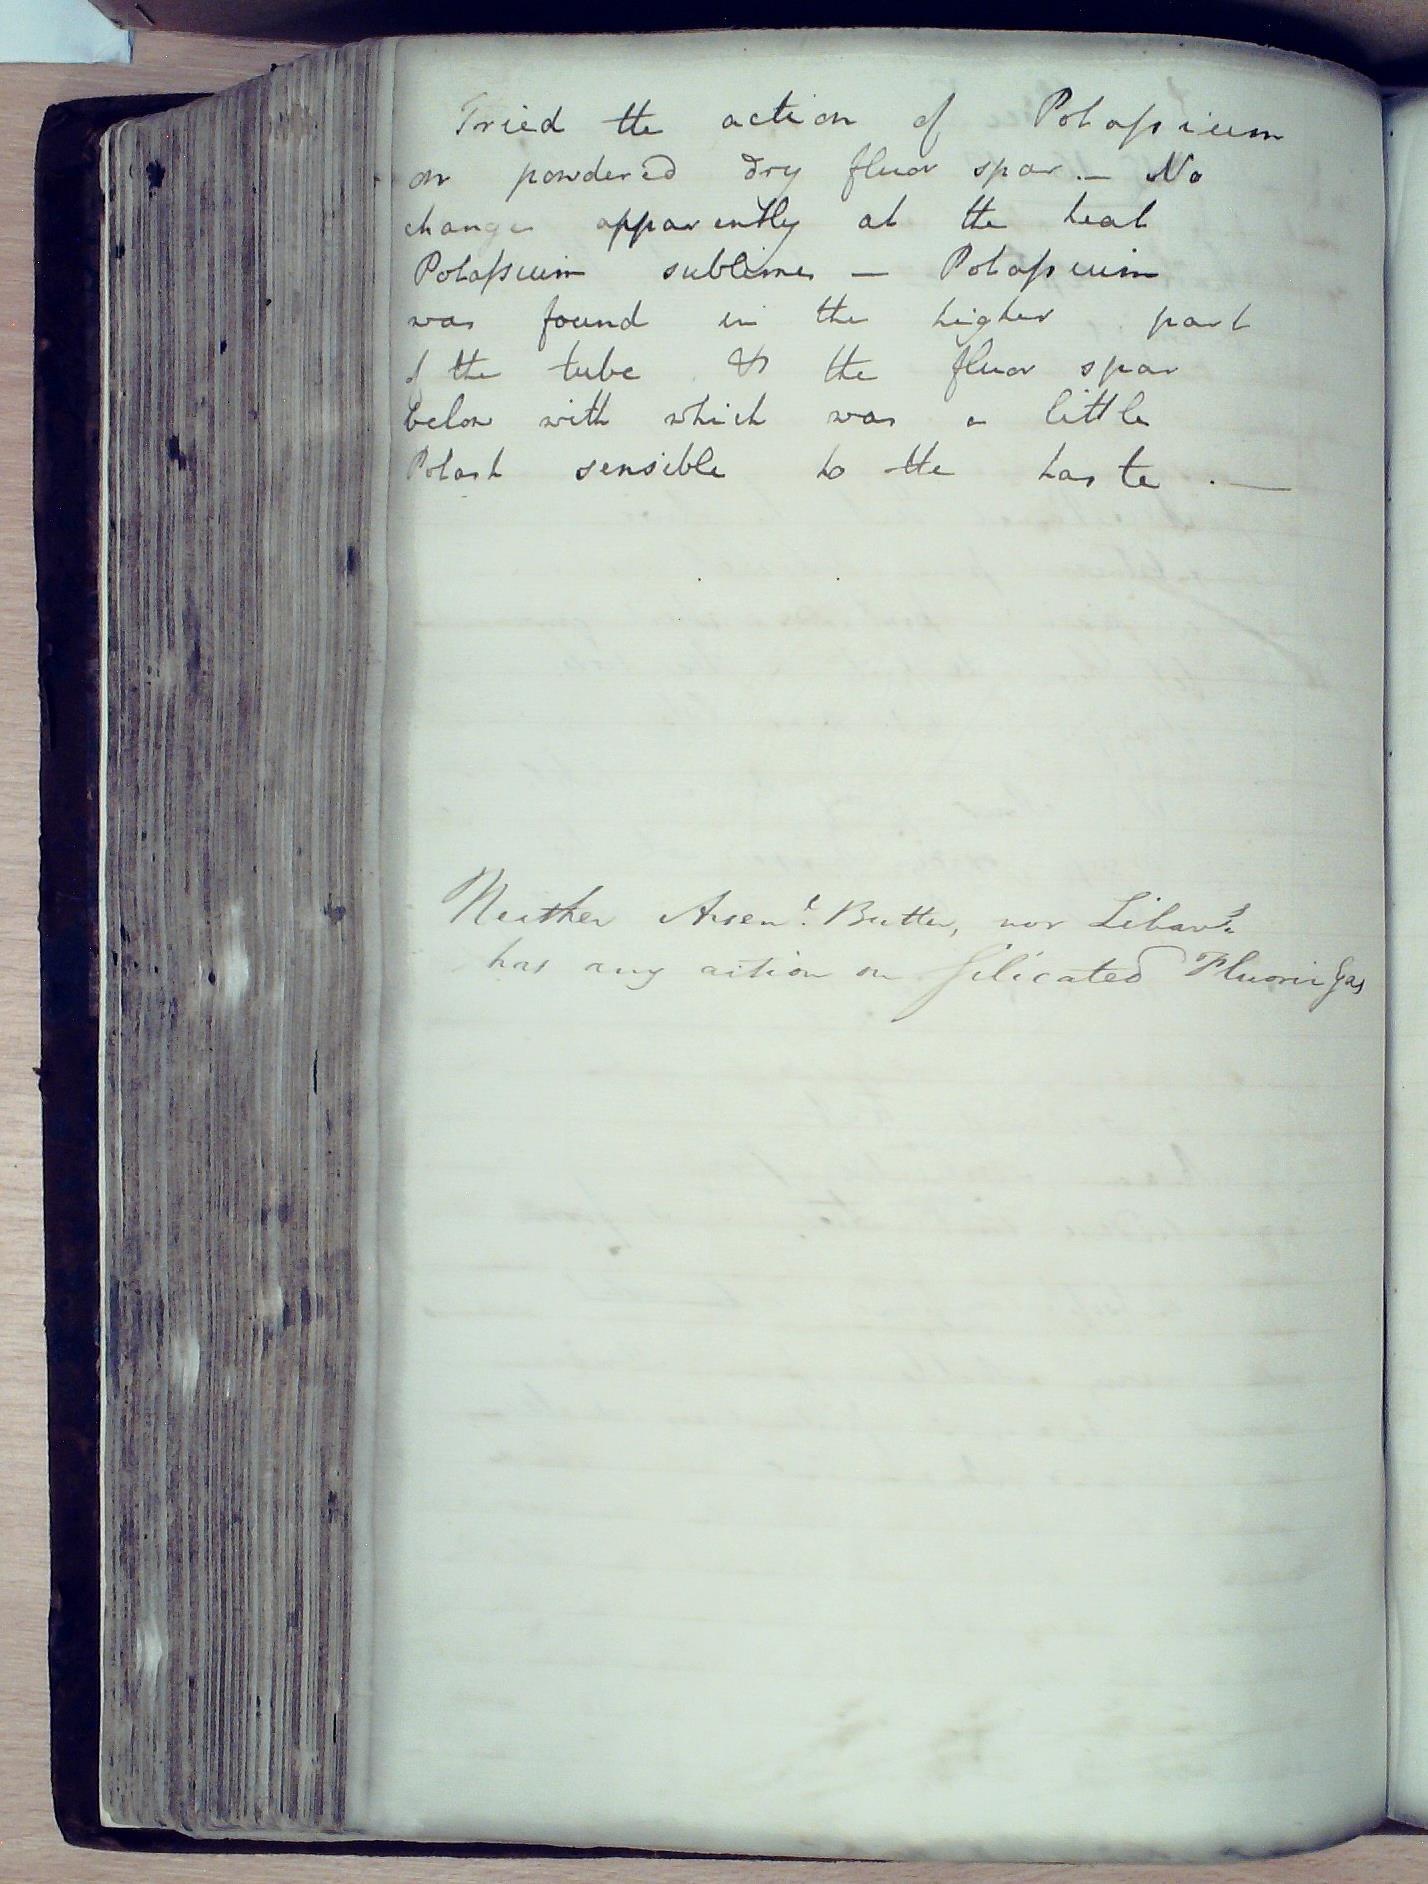 Tried the action of Potassium
on powdered dry fluor spar. — No
change apparently at the heat
Potassium sublimes — Potassium
was found in the higher part
of the tube & the fluor spar
below with which was a little
Potash sensible to the taste . —
Neither Arsen.l Butter, nor Libav.s
has any action on Silicated Fluoric Gas